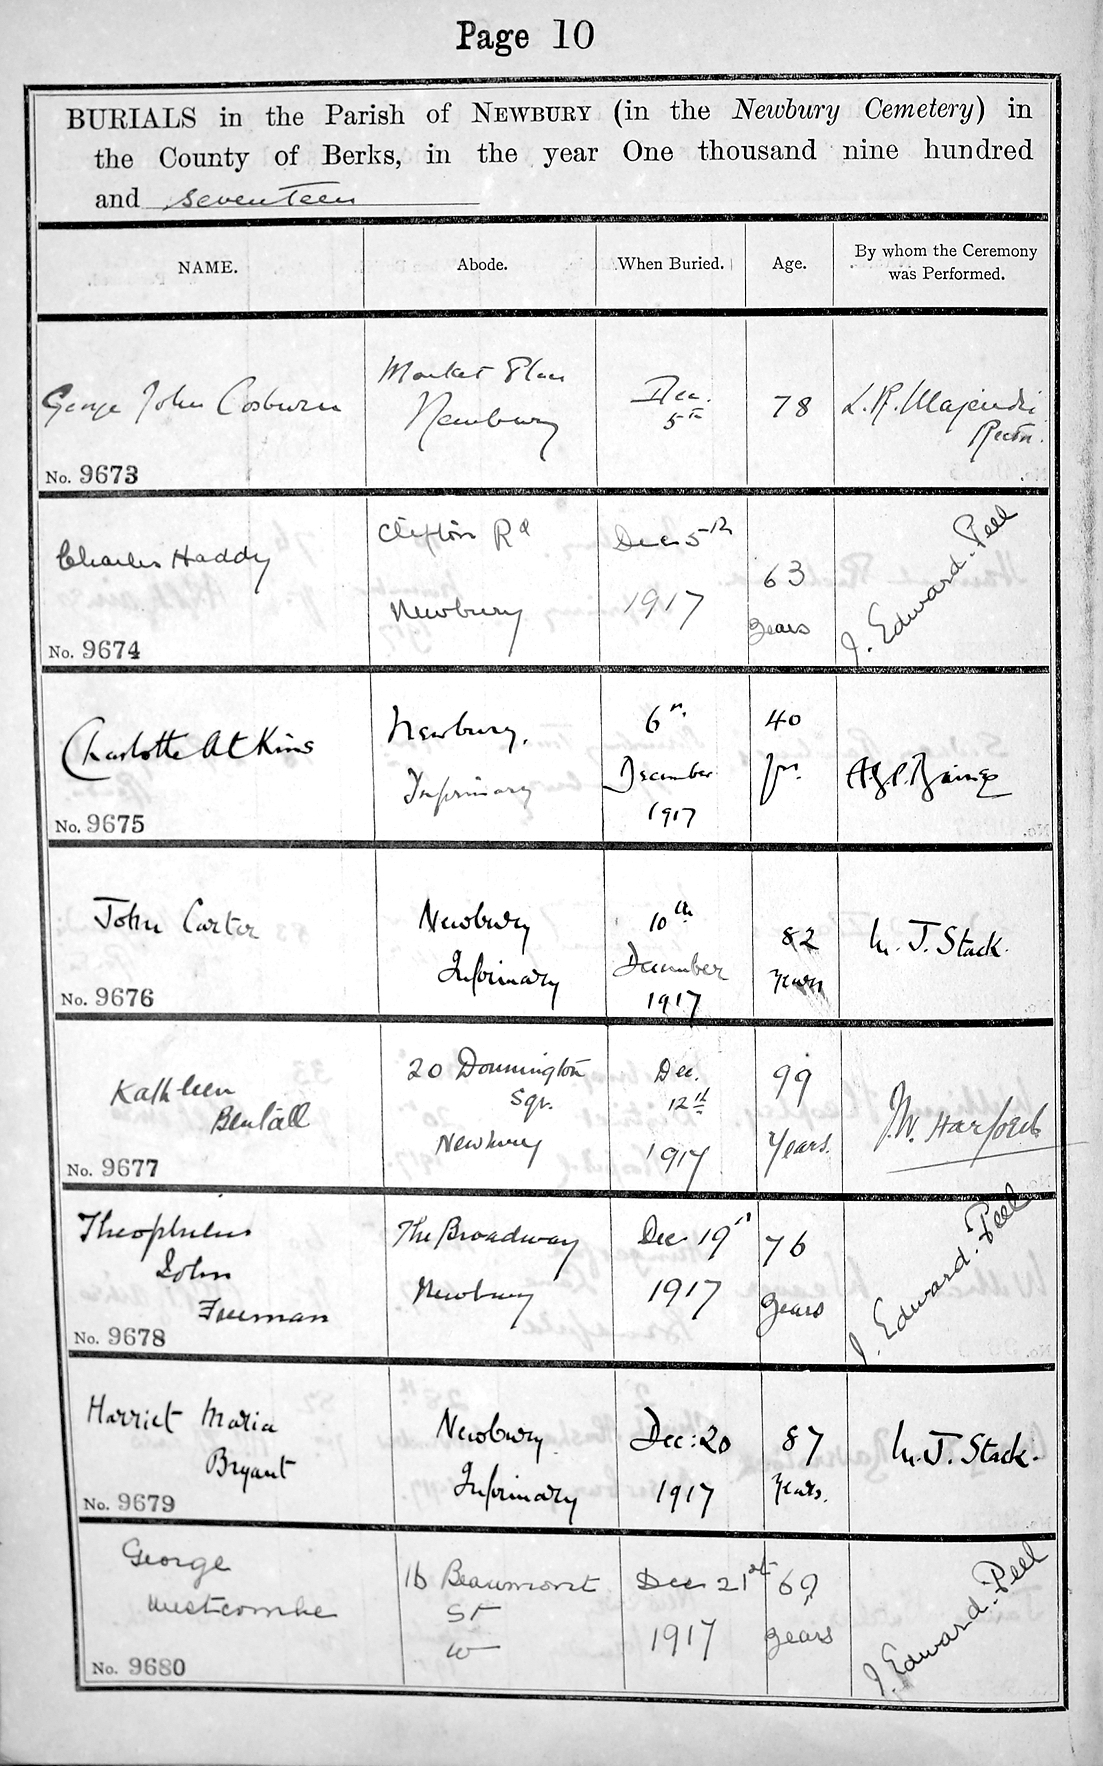 Page 10
BURIALS in the Parish of NEWBURY (in the Newbury Cemetery) in
the County of Berks, in the year One thousand nine hundred
and seventeen
NAME.
Abode.
When Buried.
Age.
By whom the Ceremony
was Performed.
George John Cosburn
No. 9673
Market Place
Newbury
Dec.
5th
78
L. R. Majendie
Rector.
Charles Haddy
No. 9674
Clifton Rd
Newbury
Dec 5th
1917
63
years
J. Edward. Peel
Charlotte Atkins
No. 9675
Newbury.
Infirmary
6th
December
1917
40
yrs.
John Carter
No. 9676
Newbury
Infirmary
10th
December
1917
82
years
W. J. Stack.
Kathleen
Bentall
No. 9677
20 Donnington
Sqr.
Newbury
Dec.
12th
1917
99
Years.
J. W. Harford
Theophilus
John
Freeman
No. 9678
The Broadway
Newbury
Dec 19th
1917
76
years
J. Edward. Peel
Harriet Maria
Bryant
No. 9679
Newbury
Infirmary
Dec: 20
1917
87
Years.
W. J. Stack.
George
Westcombe
No. 9680
16 Beaumont
St
Dec 21st
1917
69
years
J. Edward. Peel